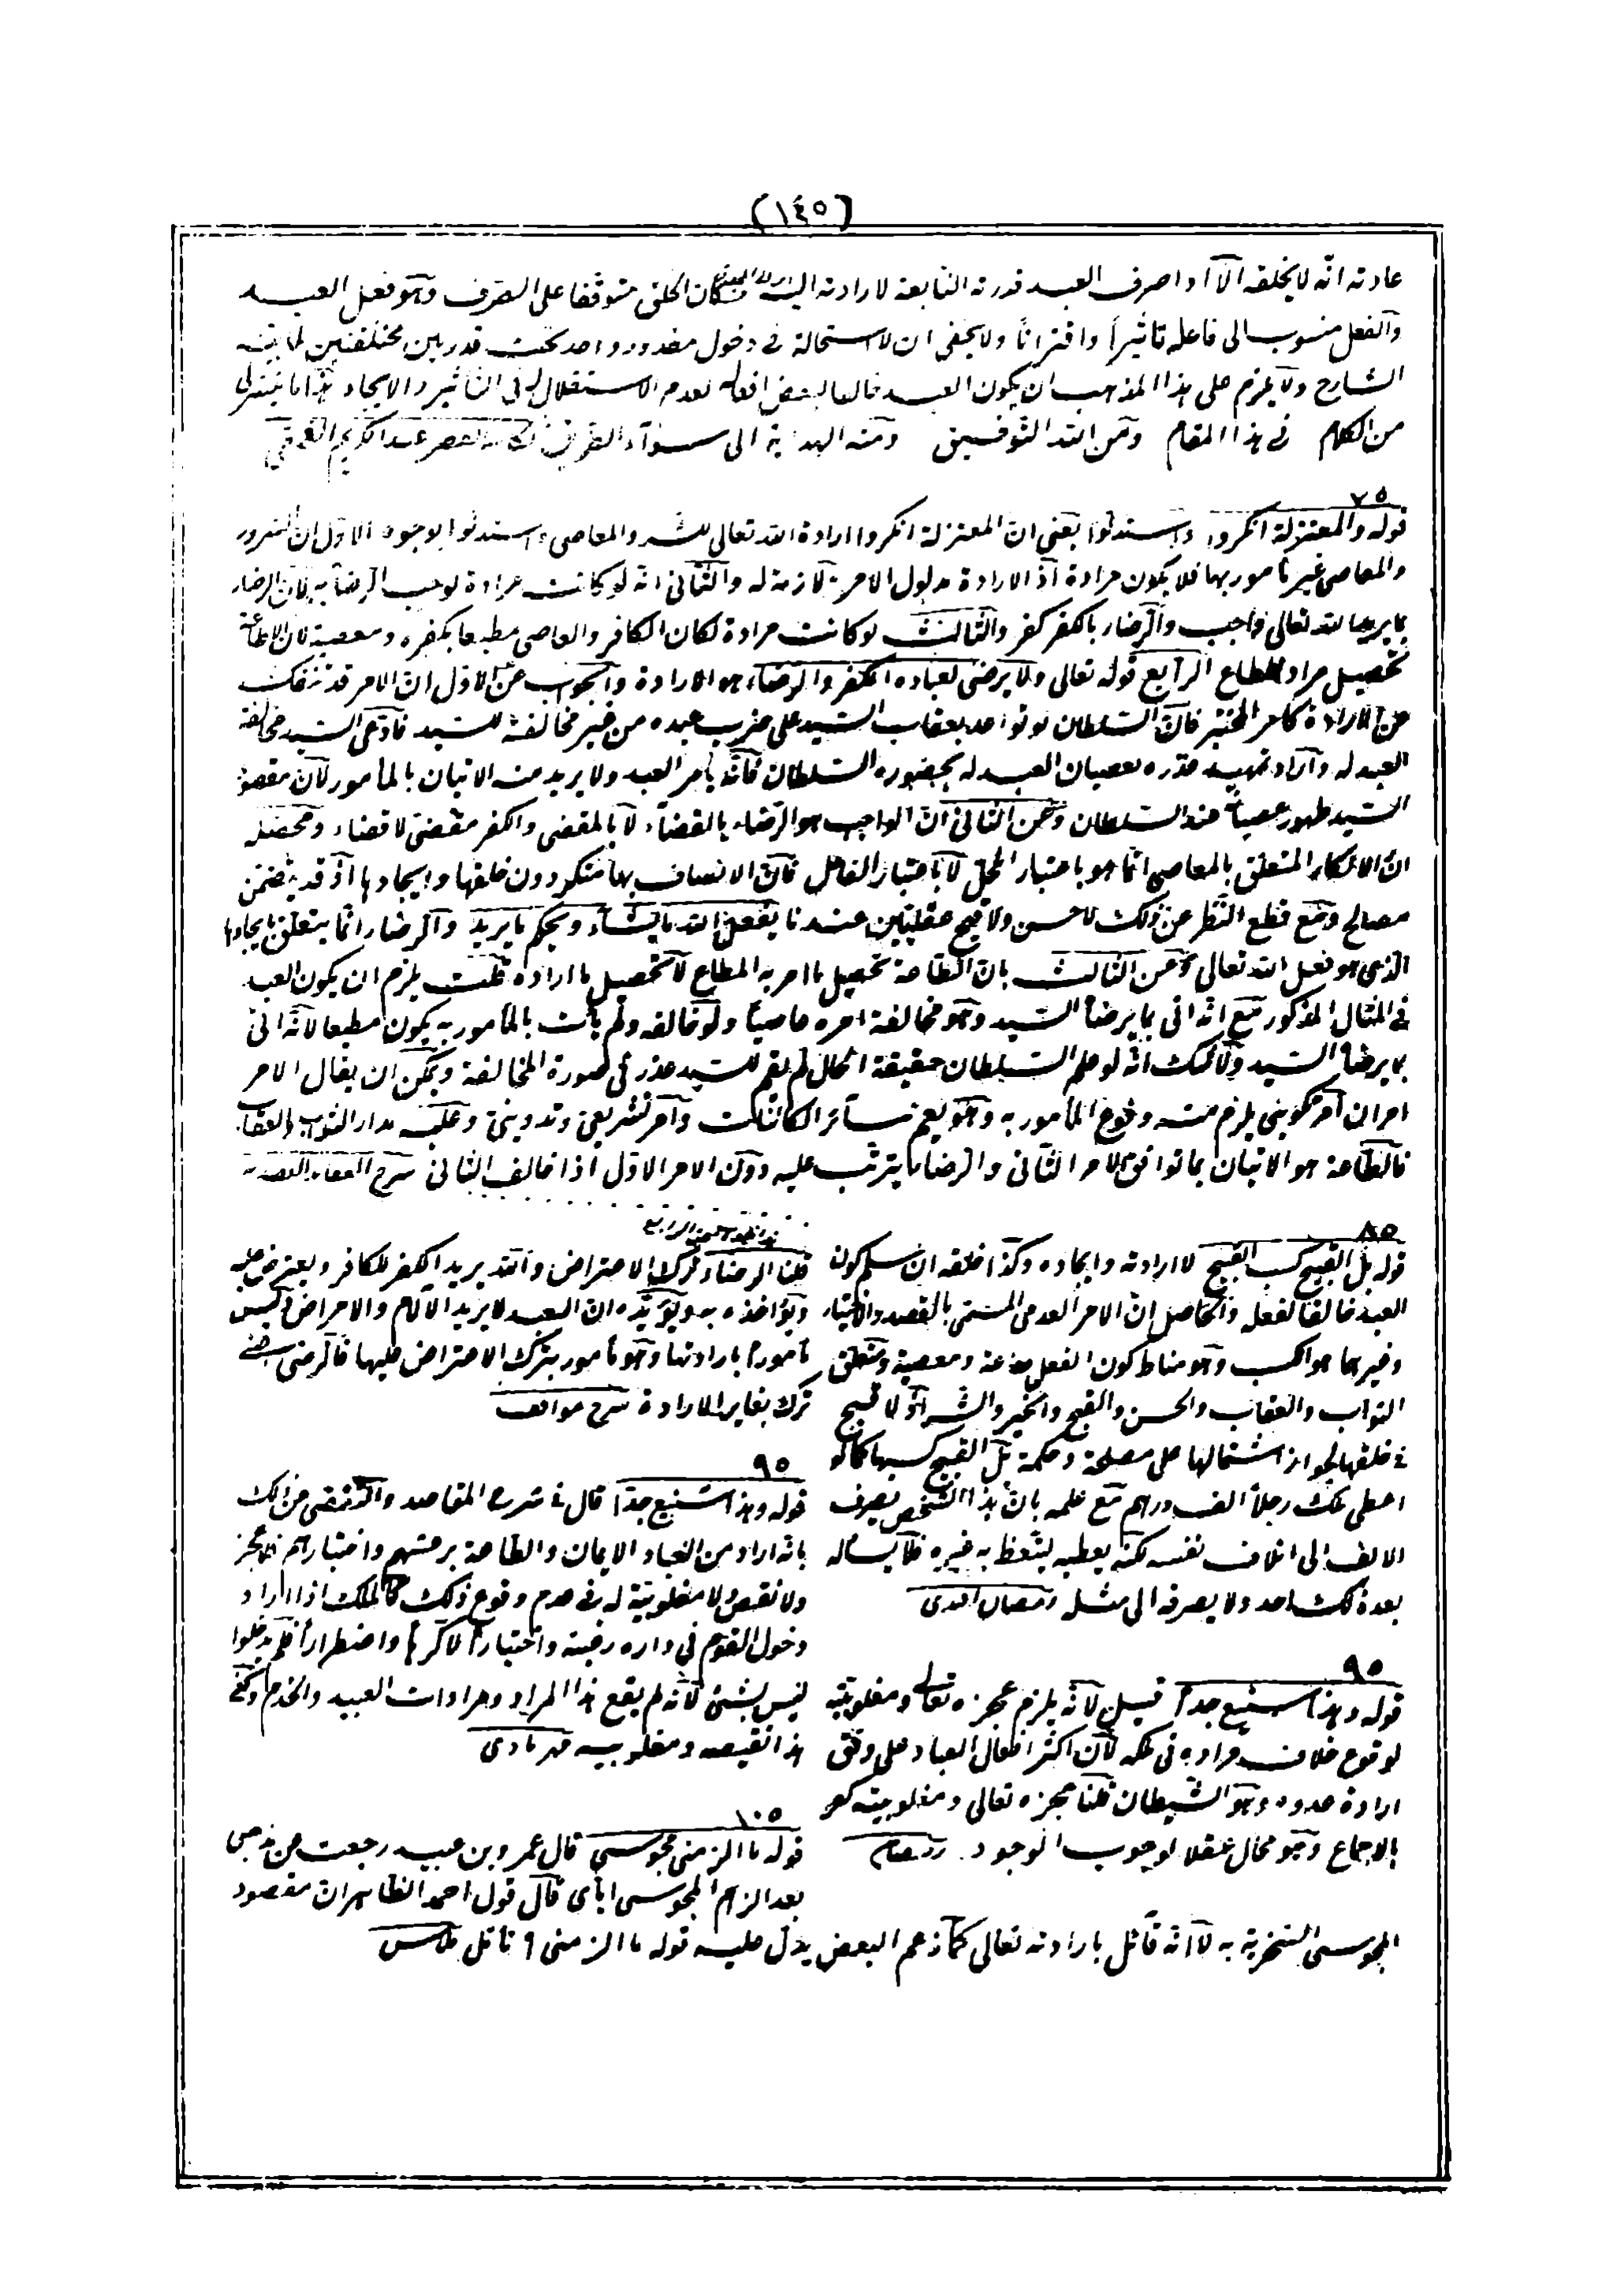 (١٤٥)
عادته انّه لا يخلقه الّا اذا صرف العبد قدرته التابعة لارادته اليه فكان الخلق متوقّفا على الصّرف وهو فعل العبد
والفعل منسوب الى فاعله تاثيراً واقتراناً ولا يخفى ان لا استحالة فى دخول مقدور واحد تحت قدرتين مختلفتين لما بيّنه
الشارح ولا يلزم على هذا المذهب ان يكون العبد خالقا لبعض افعاله لعدم الاستقلال له فى التاثير والايجاد هذا ما تيسّر لى
من الكلام فى هذا المقام ومن الله التوفيق ومنه الهداية الى سوآء الطريق
٧٥
قوله والمعتزلة انكروا واستدلّوا يعنى انّ المعتزلة انكروا ارادة الله تعالى للشر والمعاصى واستدلّوا بوجوه الاوّل ان الشرور
والمعاصى غير مأمور بها فلا يكون مرادة اذ الارادة مدلول الامر لازمة له والثّانى انه لو كانت مرادة لوجب الرضاء به لان الرضاء
بما يريد الله تعالى واجب والرضاء بالكفر كفر والثالث لو كانت مرادة لكان الكافر والعاصى مطيعا بكفره ومعصيته لان الاطاعة
تحصيل مراد المطاع الرابع قوله تعالى ولا يرضى لعباده الكفر والرضاء هو الارادة والجواب عن الاوّل انّ الامر قد تنفك
عن الارادة كامر المختبر فانّ السلطان لو تواعد بعقاب السيد على ضرب عبده من غير مخالفة للسيد فادّعى السيد مخالفة
العبد له واراد تمهيد عذره بعصيان العبد له بحضوره السلطان فانّه يأمر العبد ولا يريد منه الاتيان بالمأمور لان مقصود
السيد ظهور عصيانه عند السلطان وعن الثانى انّ الواجب هو الرضاء بالقضاء لا بالمقضى والكفر مقضىّ لا قضاء ومحصله
انّ الانكار المتعلق بالمعاصى انّما هو باعتبار المحل لا باعتبار الفاعل فانّ الانصاف بها منكر دون خلقها وايجادها اذ قد يتضمن
مصالح ومع قطع النّظر عن ذلك لا حسن ولا قبح عقليّين عندنا يفعل الله ما يشاء ويحكم ما يريد والرضاء انّما يتعلق بايجادها
الّذى هو فعل الله تعالى وعن الثالث بانّ الطاعة تحصيل ما امر به المطاع لا تحصيل ما اراده قلت يلزم ان يكون العبد
فى المثال المذكور مع انّه اتى بما يرضاه السيد وهو مخالفة امره عاصياً ولو خالفه ولم يأت بالمأمور به يكون مطيعا لانّه اتى
بما يرضاه السيد ولا شك انّه لو علم السلطان حقيقة الحال لم يقم للسيد عذر فى صورة المخالفة ويمكن ان يقال الامر
امران امر تكوينى يلزم منه وقوع المأمور به وهو يعم سائر الكائنات وامر تشريعى وتدوينى وعليه مدار الثواب والعقاب
فالطّاعة هو الاتيان بما توافق الامر الثّانى والرضاء يترتّب عليه دون الامر الاوّل اذا خالف الثانى شرح العقائد العضدية
٨٥
قوله بل القبيح كسب القبيح لا ارادته وايجاده وكذا خلقه ان سلم كون
العبد خالقا لفعله والحاصل انّ الامر العدمى المسمّى بالقصد والاختيار
وغيرهما هو الكسب وهو مناط كون الفعل طاعة ومعصية ومتعلق
الثواب والعقاب والحسن والقبح والخير والشر اذ لا قبح
فى خلقها لجواز اشتمالها على مصلحة وحكمة بل القبح كسبها كما لو
اعطى ملك رجلاً الف درهم مع علمه بانّ هذا الشخص يصرف
الالف الى اتلاف نفسه لكنّه يعطيه ليتّعظ به غيره فلا يسأله
بعد ذلك احد ولا يصرفه الى مثله رمضان افندى
٩٥
قوله وهذا شنيع جداً قيل لانّه يلزم عجزه تعالى ومغلوبيّته
لوقوع خلاف مراده فى ملكه لان اكثر افعال العباد على وفق
ارادة عدوه وهو الشيطان قلنا عجزه تعالى ومغلوبيته كفر
بالاجماع وهو محال عقلا لوجوب الوجود رمضان
قلنا الرضاء ترك الاعتراض والله يريد الكفر للكافر ويعترض عليه
ويؤاخذه به ويؤيّده انّ العبد لا يريد الآلام والامراض وليس
مأموراً بارادتها وهو مأمور بترك الاعتراض عليها فالرضى اعنى
ترك يغاير الارادة شرح مواقف
٩٥
قوله وهذا شنيع جدّا قال فى شرح المقاصد والتفصّى عن ذلك
بانّه اراد من العباد الايمان والطاعة برغبتهم واختيارهم فلا عجز
ولا نقص ولا مغلوبيّة له فى عدم وقوع ذلك كالملك اذا اراد
دخول القوم فى داره رغبته واختياراً لا كرهاً واضطراراً فلم يدخلوا
ليس بشئ لانه لم يقع هذا المراد ومرادات العبيد والخدم وكفى
هذا نقيصة ومغلوبية
١٠٥
قوله ما الزمنى مجوسى قال عمرو بن عبيد رجعت عن مذهبى
بعد الزام المجوسى اياى قال قول احمد الظاهر ان مقصود
المجوسى السخرية به لا انّه قائل بارادته تعالى كما زعم البعض يدل عليه قوله ما الزمنى